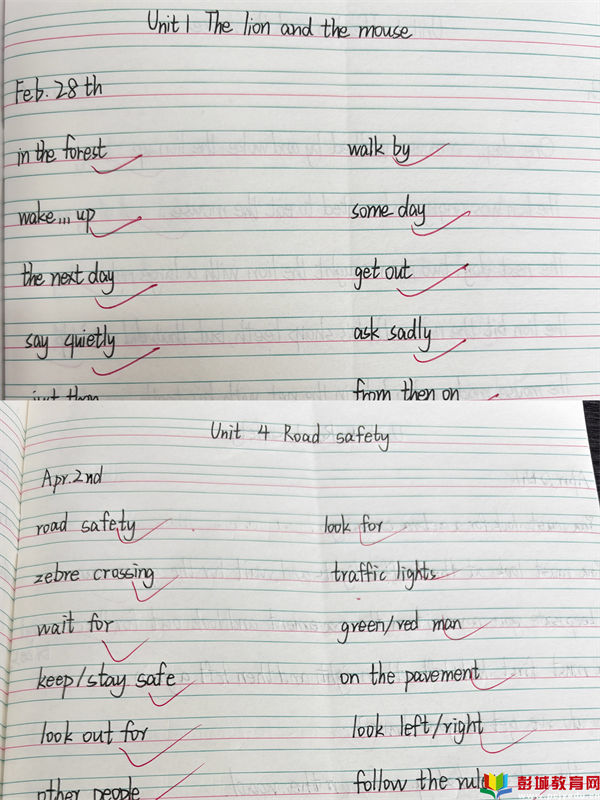 Unit 1 The lion and the mouse
Feb. 28th
in the forest walk by
wake... up some day
the next day get out
say quietly ask sadly
just then from then on
Unit 4 Road safety
Apr. 2nd
road safety look for
zebre crossing traffic lights
wait for green/red man
keep/stay safe on the pavement
look out for look left/right
other people follow the rule
彭城教育网